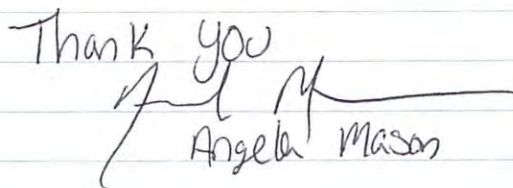 Thank you
Angela Mason